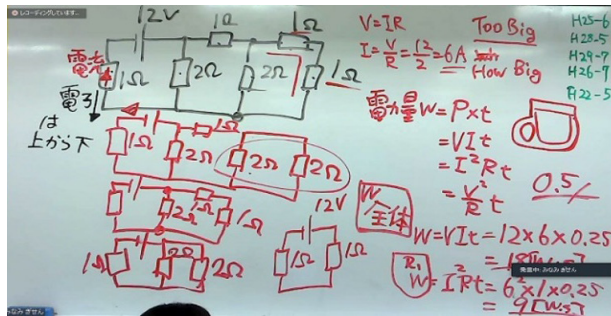 レコーディングしています...
12V
1Ω
1Ω
電流
1Ω
2Ω
2Ω
1Ω
電子
は
上から下
1Ω
1Ω
2Ω
2Ω
2Ω
2Ω
1Ω
1Ω
1Ω
2Ω
2Ω
12V
1Ω
1Ω
V=IR
I=V/R=12/2=6A
Too Big
How Big
H25-6
H28-5
H29-7
H26-7
R22-5
電力量W=P×t
=VIt
=I²Rt
=V²/R t
0.5
W
全体
W=VIt=12×6×0.25
R₁
W=I²Rt=6²×1×0.25